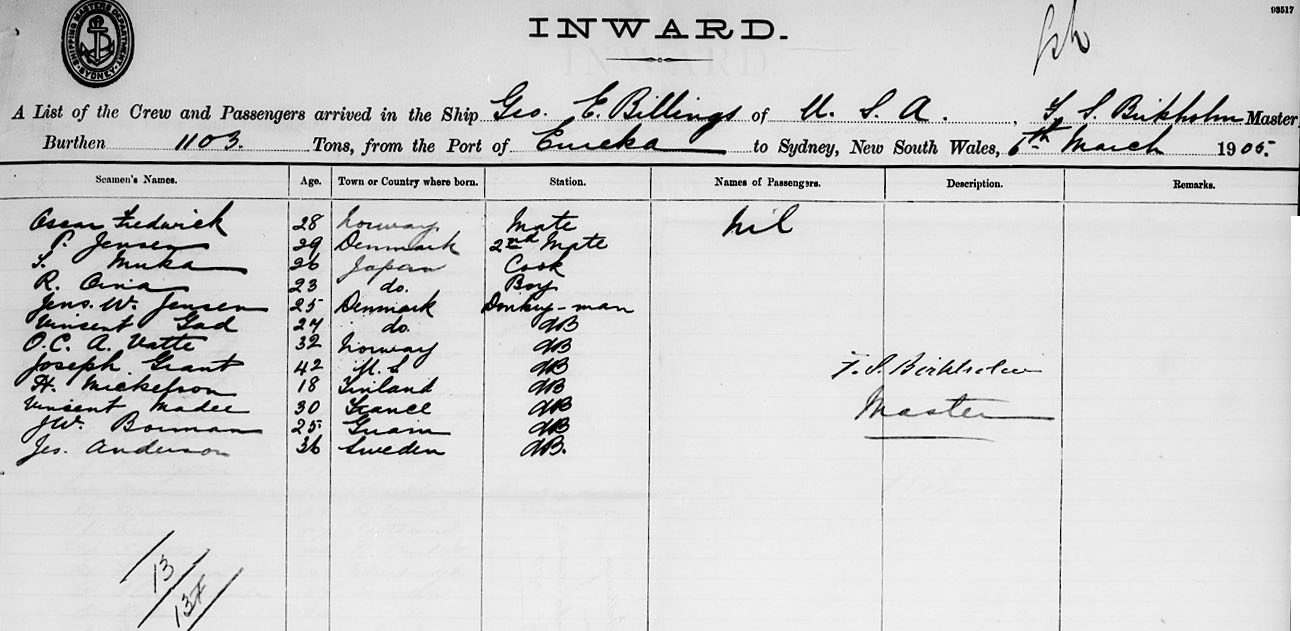 93517
SHIPPING MASTERS DEPARTMENT SYDNEY
INWARD.
A List of the Crew and Passengers arrived in the Ship Geo. E. Billings of U. S. A. F. S. Birkholm Master
Burthen 1103. Tons, from the Port of Eureka to Sydney, New South Wales, 6th March 1905.
Seamen's Names. Age. Town or Country where born. Station. Names of Passengers. Description. Remarks.
Oscar Fredwick 28 Norway Mate Nil
P. Jensen 29 Denmark 2nd Mate
S. Muka 26 Japan Cook
R. 23 do. Boy
Jens. W. Jensen 25 Denmark Donkey-man
Vinsent Gad 27 do. AB
O.C. A. Vatte 32 Norway AB
Joseph Grant 42 U. S AB
H. Mickelson 18 Finland AB
Vinsent Madec 30 France AB
JW. Borman 25 Guam AB
Jos. Anderson 36 Sweden AB.
F. S. Birkholm
Master
13
13